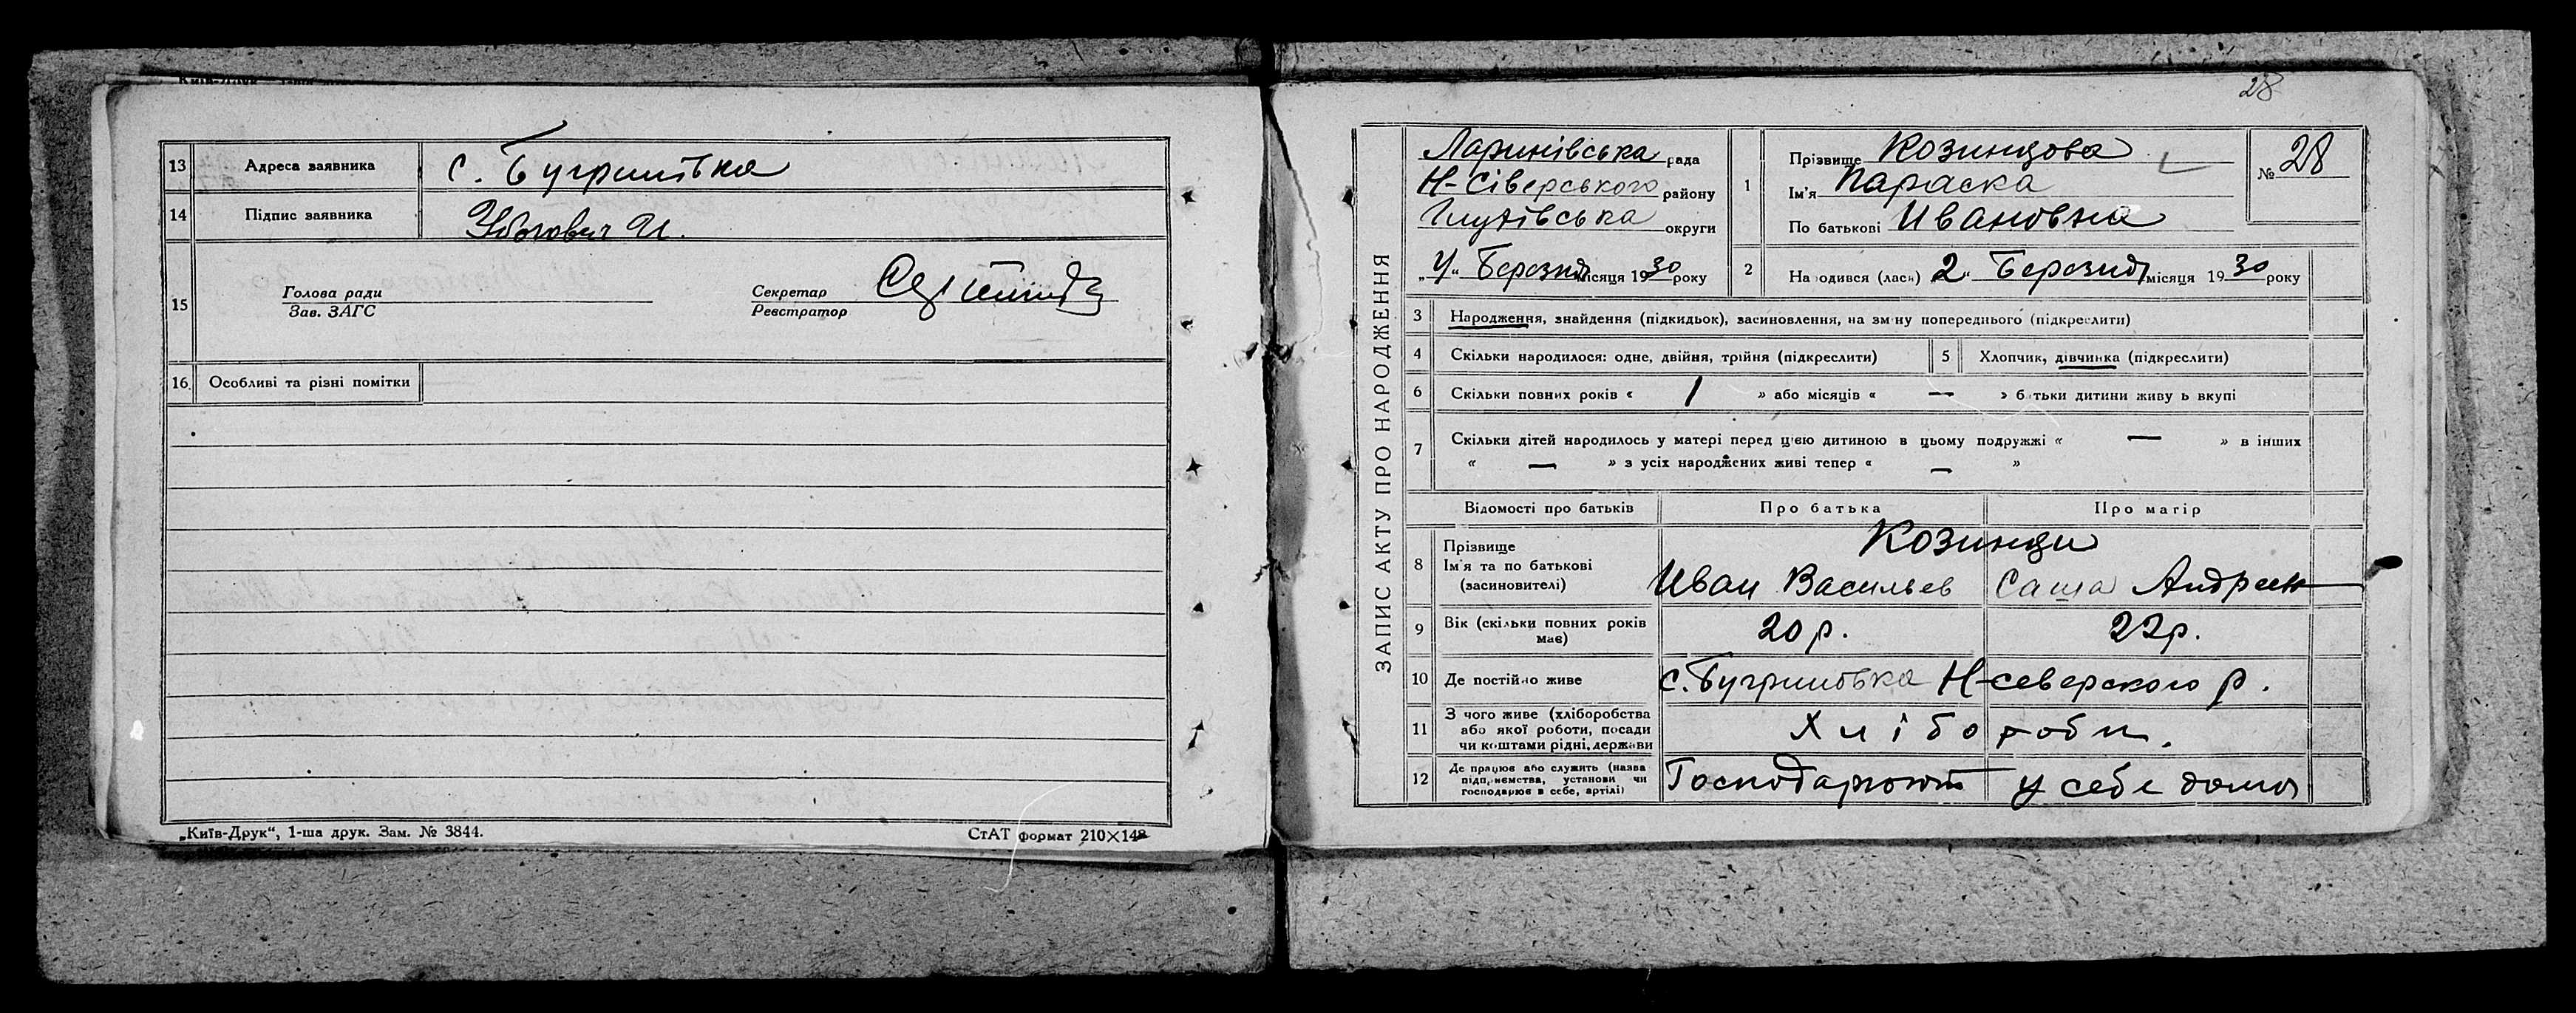 13 Адреса заявника с. Бугринівка
14 Підпис заявника
15 Голова ради
Зав. ЗАГС
Секретар
Реєстратор
16 Особливі та різні помітки
„Київ-Друк“, 1-ша друк. Зам. № 3844.
СтАТ формат 210×148
28
ЗАПИС АКТУ ПРО НАРОДЖЕННЯ
Ларинівська рада
Н-Сіверського району
Глухівська округи
„4“ Березня місяця 1930 року
1 Прізвище Козинцова
Ім'я Параска
По батькові Ивановна
№ 28
2 Народився (лась) „2“ Березня місяця 1930 року
3 Народження, знайдення (підкидьок), засиновлення, на зміну попереднього (підкреслити)
4 Скільки народилося: одне, двійня, трійня (підкреслити)
5 Хлопчик, дівчинка (підкреслити)
6 Скільки повних років « 1 » або місяців « — » батьки дитини живуть вкупі
7 Скільки дітей народилось у матері перед цією дитиною в цьому подружжі « — » в інших
« — » з усіх народжених живі тепер « — »
Відомості про батьків Про батька Про матір
8 Прізвище Козинци
Ім'я та по батькові
(засиновителі) Иван Васильев Саша Андреев
9 Вік (скільки повних років має) 20 р. 22 р.
10 Де постійно живе с. Бугриновка Н-северского р.
11 З чого живе (хліборобства
або якої роботи, посади
чи коштами рідні, держави Хлібороби.
12 Де працює або служить (назва
підприємства, установи чи
господарює в себе, артілі) Господарюют у себе дома